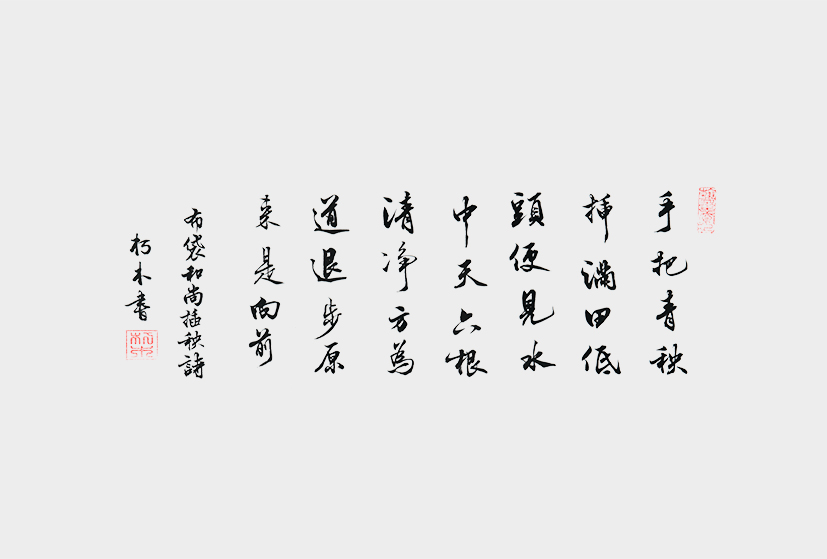 手把青秧
插滿田低
頭便見水
中天六根
清净方為
道退步原
来是向前
布袋和尚插秧詩
朽木書
朽木